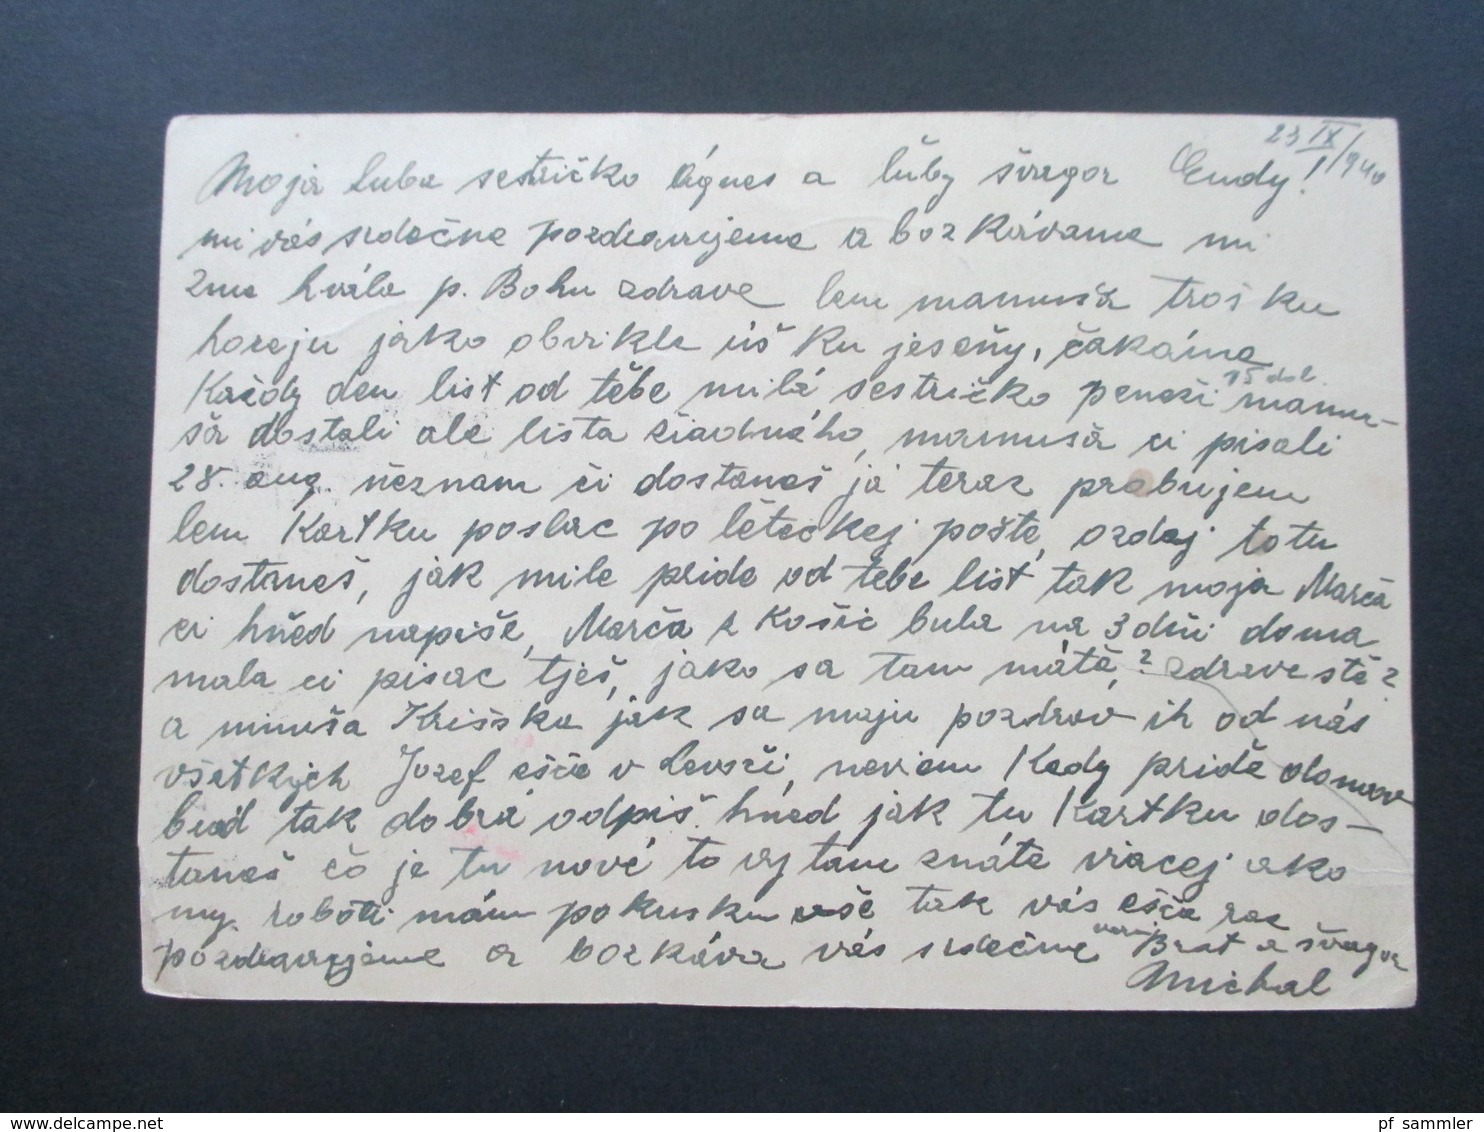 23 IX 1940
Moja luba sestričko Ágnes a lúby švagor Endy!
mi vás srdečne pozdravujeme a bozkávame mi
zme hvála p. Bohu zdrave lem mamuša trošku
horeju jako obvikle uš ku jeseňy, čakáme
Každy den list od těbe milá sestričko peneži 15 dol. mamu-
ša dostali ale lista žiadného, mamuša ci pisali
28. aug. ňeznam či dostaneš ja teraz probujem
lem Kartku poslac po lěteckej pošte, ozdaj totu
dostaneš, jak mile pride od tebe list tak moja Marča
ci hňed napiše, Marča z Košic bula na 3 dňi doma
mala ci pisac tješ, jako sa tam mátě? zdrave stě?
a minuša Kriška jak sa maju pozdrav ih od nás
všetkych Jozef ešče v Levoči, neviem Kedy pridě domov
buď tak dobrá odpiš hňed jak tu Kartku dos-
taneš čo je tu nové to aj tam znáte viacej ako
my. roboti mám pokusku vše tak vás ešče raz
pozdravujeme a bozkáva vás srdečne verný Brat a švagor
Michal
delcampe.net
pf_sammler